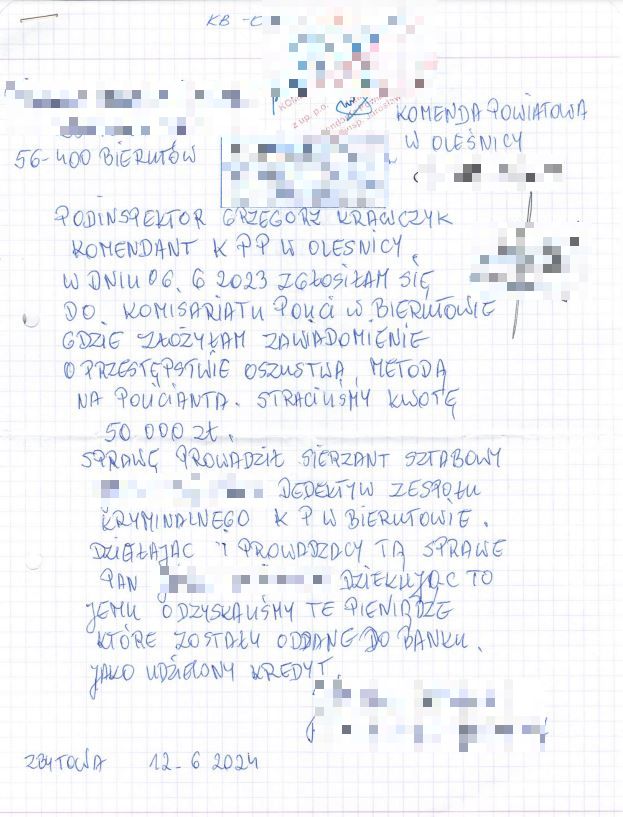 KB
z up. p.o.
KOMENDA POWIATOWA
W OLEŚNICY
56-400 BIERUTÓW
PODINSPEKTOR GRZEGORZ KRAWCZYK
KOMENDANT K PP W OLEŚNICY
W DNIU 06. 6 2023 ZGŁOSIŁAM SIĘ
DO KOMISARIATU POLICI W BIERUTOWIE
GDZIE ZŁOŻYŁAM ZAWIADOMIENIE
O PRZESTĘPSTWIE OSZUSTWA, METODĄ
NA POLICIANTA. STRACILIŚMY KWOTĘ
50 000 zł.
SPRAWĘ PROWADZIŁ SIERZANT SZTABOWY
DEDEKTYW ZESPOŁU
KRYMINALNEGO K P W BIERUTOWIE.
DZIEŁAJĄC I PROWADZACY TĄ SPRAWE
PAN DZIEKUJĄC TO
JEMU ODZYSKALIŚMY TE PIENIĄDZE
KTÓRE ZOSTAŁY ODDANE DO BANKU.
JAKO UDZIELONY KREDYT.
ZBYTOWA 12-6 2024